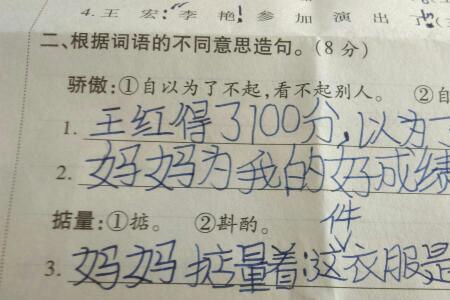 4.王 宏:李 艳!参 加 演 出 了
二、根据词语的不同意思造句。(8分)
骄傲:①自以为了不起,看不起别人。 ②自
1. 王红得了100分,以为了
2. 妈妈为我的好成绩
掂量:①掂。 ②斟酌。
件
3. 妈妈掂量着:这衣服是